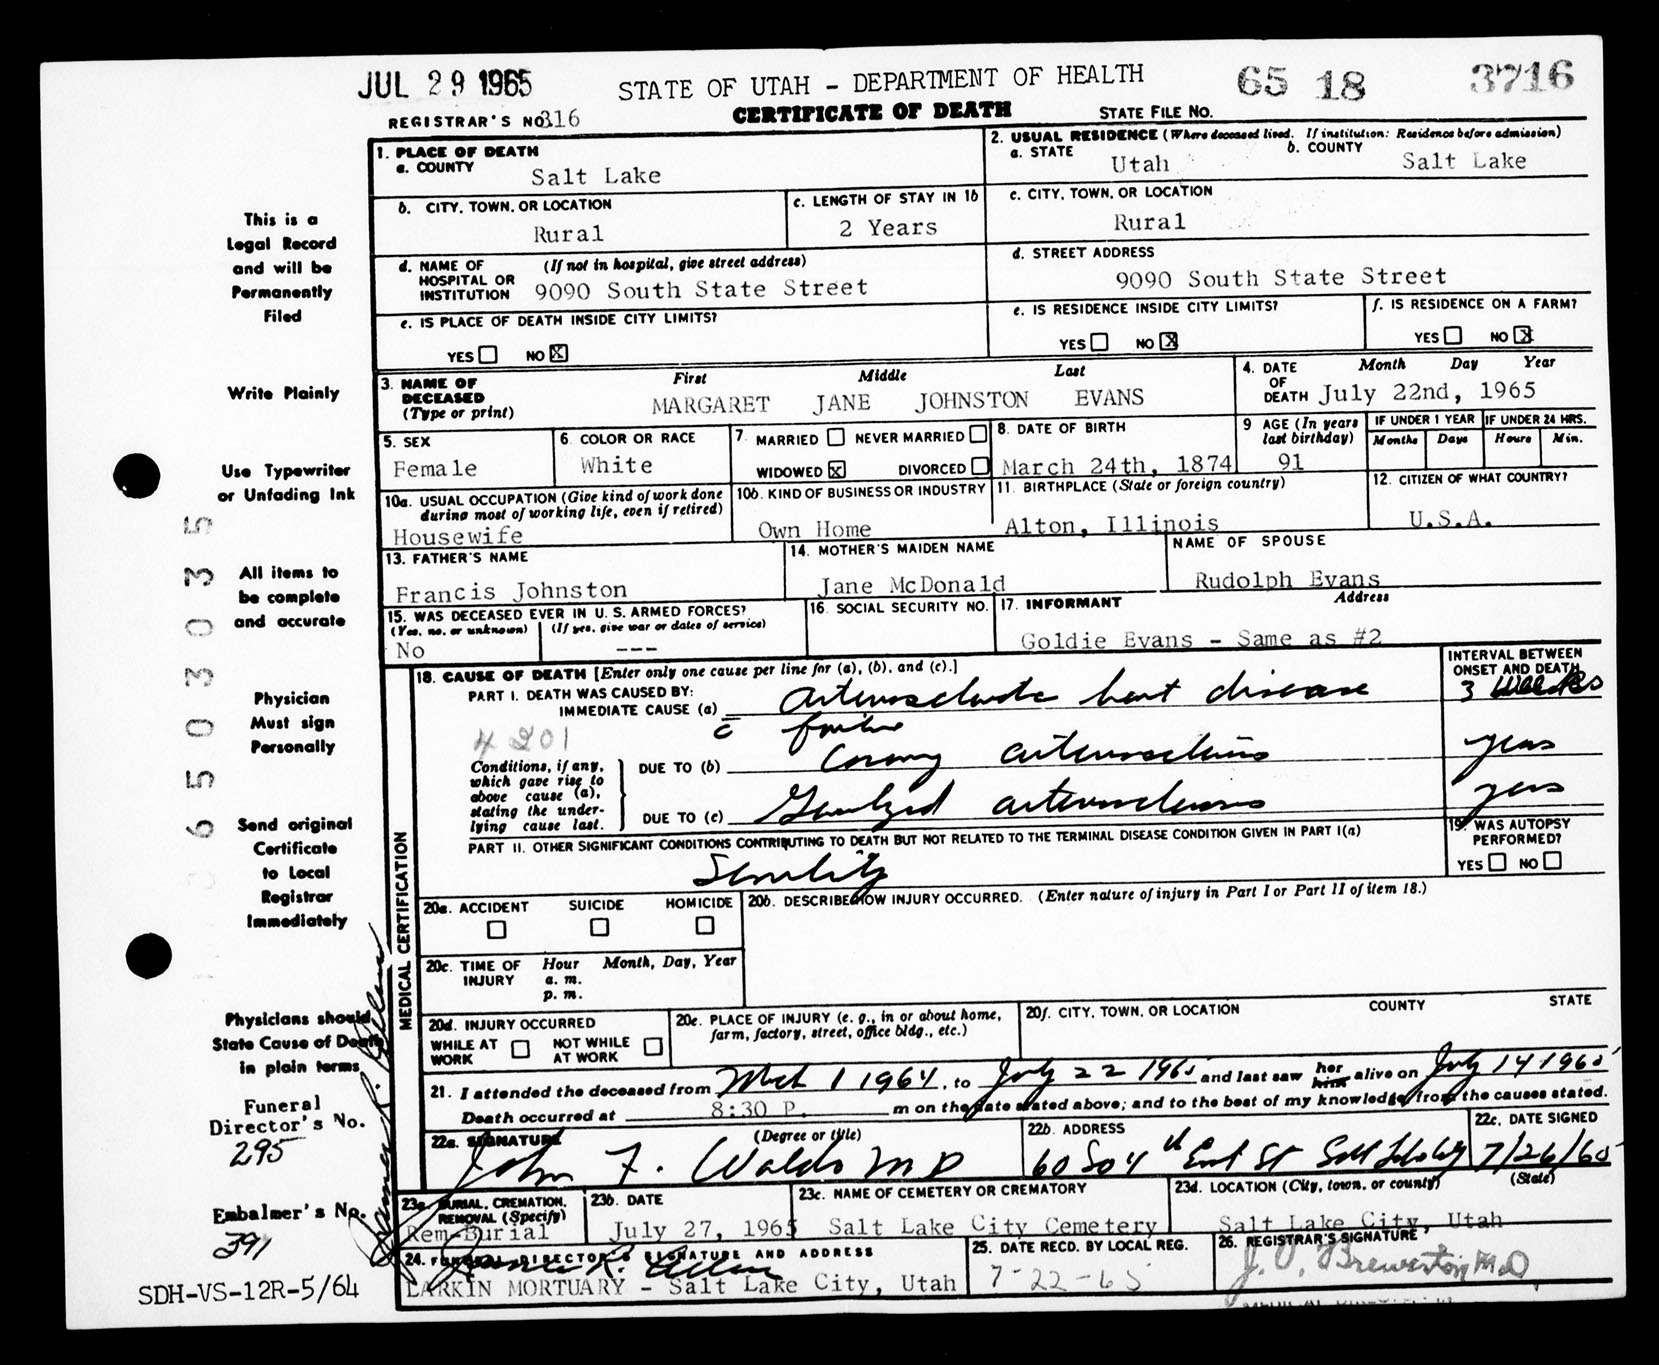 JUL 29 1965
STATE OF UTAH - DEPARTMENT OF HEALTH
65 18 3716
REGISTRAR'S NO. 316
CERTIFICATE OF DEATH
STATE FILE NO.
1. PLACE OF DEATH
a. COUNTY
Salt Lake
2. USUAL RESIDENCE (Where deceased lived. If institution: Residence before admission)
a. STATE Utah b. COUNTY Salt Lake
b. CITY, TOWN, OR LOCATION
Rural
c. LENGTH OF STAY IN 1b
2 Years
c. CITY, TOWN, OR LOCATION
Rural
d. NAME OF HOSPITAL OR INSTITUTION (If not in hospital, give street address)
9090 South State Street
d. STREET ADDRESS
9090 South State Street
e. IS PLACE OF DEATH INSIDE CITY LIMITS?
YES NO X
e. IS RESIDENCE INSIDE CITY LIMITS?
YES NO X
f. IS RESIDENCE ON A FARM?
YES NO X
3. NAME OF DECEASED (Type or print)
First Middle Last
MARGARET JANE JOHNSTON EVANS
4. DATE OF DEATH Month Day Year
July 22nd, 1965
5. SEX
Female
6. COLOR OR RACE
White
7. MARRIED NEVER MARRIED
WIDOWED X DIVORCED
8. DATE OF BIRTH
March 24th, 1874
9 AGE (In years last birthday)
91
IF UNDER 1 YEAR
Months Days
IF UNDER 24 HRS.
Hours Min.
10a. USUAL OCCUPATION (Give kind of work done during most of working life, even if retired)
Housewife
10b. KIND OF BUSINESS OR INDUSTRY
Own Home
11. BIRTHPLACE (State or foreign country)
Alton, Illinois
12. CITIZEN OF WHAT COUNTRY?
U.S.A.
13. FATHER'S NAME
Francis Johnston
14. MOTHER'S MAIDEN NAME
Jane McDonald
NAME OF SPOUSE
Rudolph Evans
15. WAS DECEASED EVER IN U. S. ARMED FORCES?
(Yes, no, or unknown) (If yes, give war or dates of service)
No ---
16. SOCIAL SECURITY NO.
17. INFORMANT Address
Goldie Evans - Same as #2
MEDICAL CERTIFICATION
18. CAUSE OF DEATH [Enter only one cause per line for (a), (b), and (c).]
INTERVAL BETWEEN ONSET AND DEATH
PART I. DEATH WAS CAUSED BY:
IMMEDIATE CAUSE (a) Arteriosclerotic heart disease 3 Weeks
c̄ failure
4201
Conditions, if any, which gave rise to above cause (a), stating the underlying cause last.
DUE TO (b) Coronary arteriosclerosis years
DUE TO (c) Generalized arteriosclerosis years
PART II. OTHER SIGNIFICANT CONDITIONS CONTRIBUTING TO DEATH BUT NOT RELATED TO THE TERMINAL DISEASE CONDITION GIVEN IN PART I(a)
Senility
19. WAS AUTOPSY PERFORMED?
YES NO
20a. ACCIDENT SUICIDE HOMICIDE
20b. DESCRIBE HOW INJURY OCCURRED. (Enter nature of injury in Part I or Part II of item 18.)
20c. TIME OF INJURY Hour Month, Day, Year
a. m.
p. m.
20d. INJURY OCCURRED
WHILE AT WORK NOT WHILE AT WORK
20e. PLACE OF INJURY (e. g., in or about home, farm, factory, street, office bldg., etc.)
20f. CITY, TOWN, OR LOCATION COUNTY STATE
21. I attended the deceased from Mch 1 1964, to July 22 1965 and last saw her him alive on July 14 1965
Death occurred at 8:30 P. m on the date stated above; and to the best of my knowledge, from the causes stated.
22a. SIGNATURE (Degree or title)
John F. Waldo MD
22b. ADDRESS
60 So 4th East St Salt Lake City
22c. DATE SIGNED
7/26/65
23a. BURIAL, CREMATION, REMOVAL (Specify)
Rem-Burial
23b. DATE
July 27, 1965
23c. NAME OF CEMETERY OR CREMATORY
Salt Lake City Cemetery
23d. LOCATION (City, town, or county) (State)
Salt Lake City, Utah
24. FUNERAL DIRECTOR'S SIGNATURE AND ADDRESS
LARKIN MORTUARY - Salt Lake City, Utah
25. DATE RECD. BY LOCAL REG.
7-22-65
26. REGISTRAR'S SIGNATURE
This is a
Legal Record
and will be
Permanently
Filed
Write Plainly
Use Typewriter
or Unfading Ink
All items to
be complete
and accurate
Physician
Must sign
Personally
Send original
Certificate
to Local
Registrar
Immediately
Physicians should
State Cause of Death
in plain terms
Funeral
Director's No.
295
Embalmer's No.
391
SDH-VS-12R-5/64
6503035